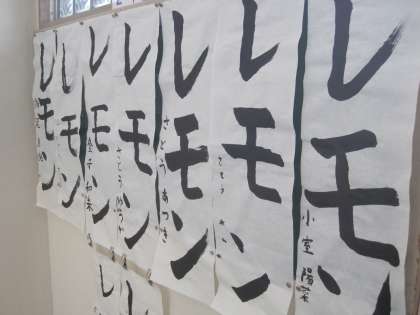 レモン
小室陽菜
レモン
レモン
さとうあつき
レモン
さとう
レモン
金子和未
レモン
レモン
レ
レ